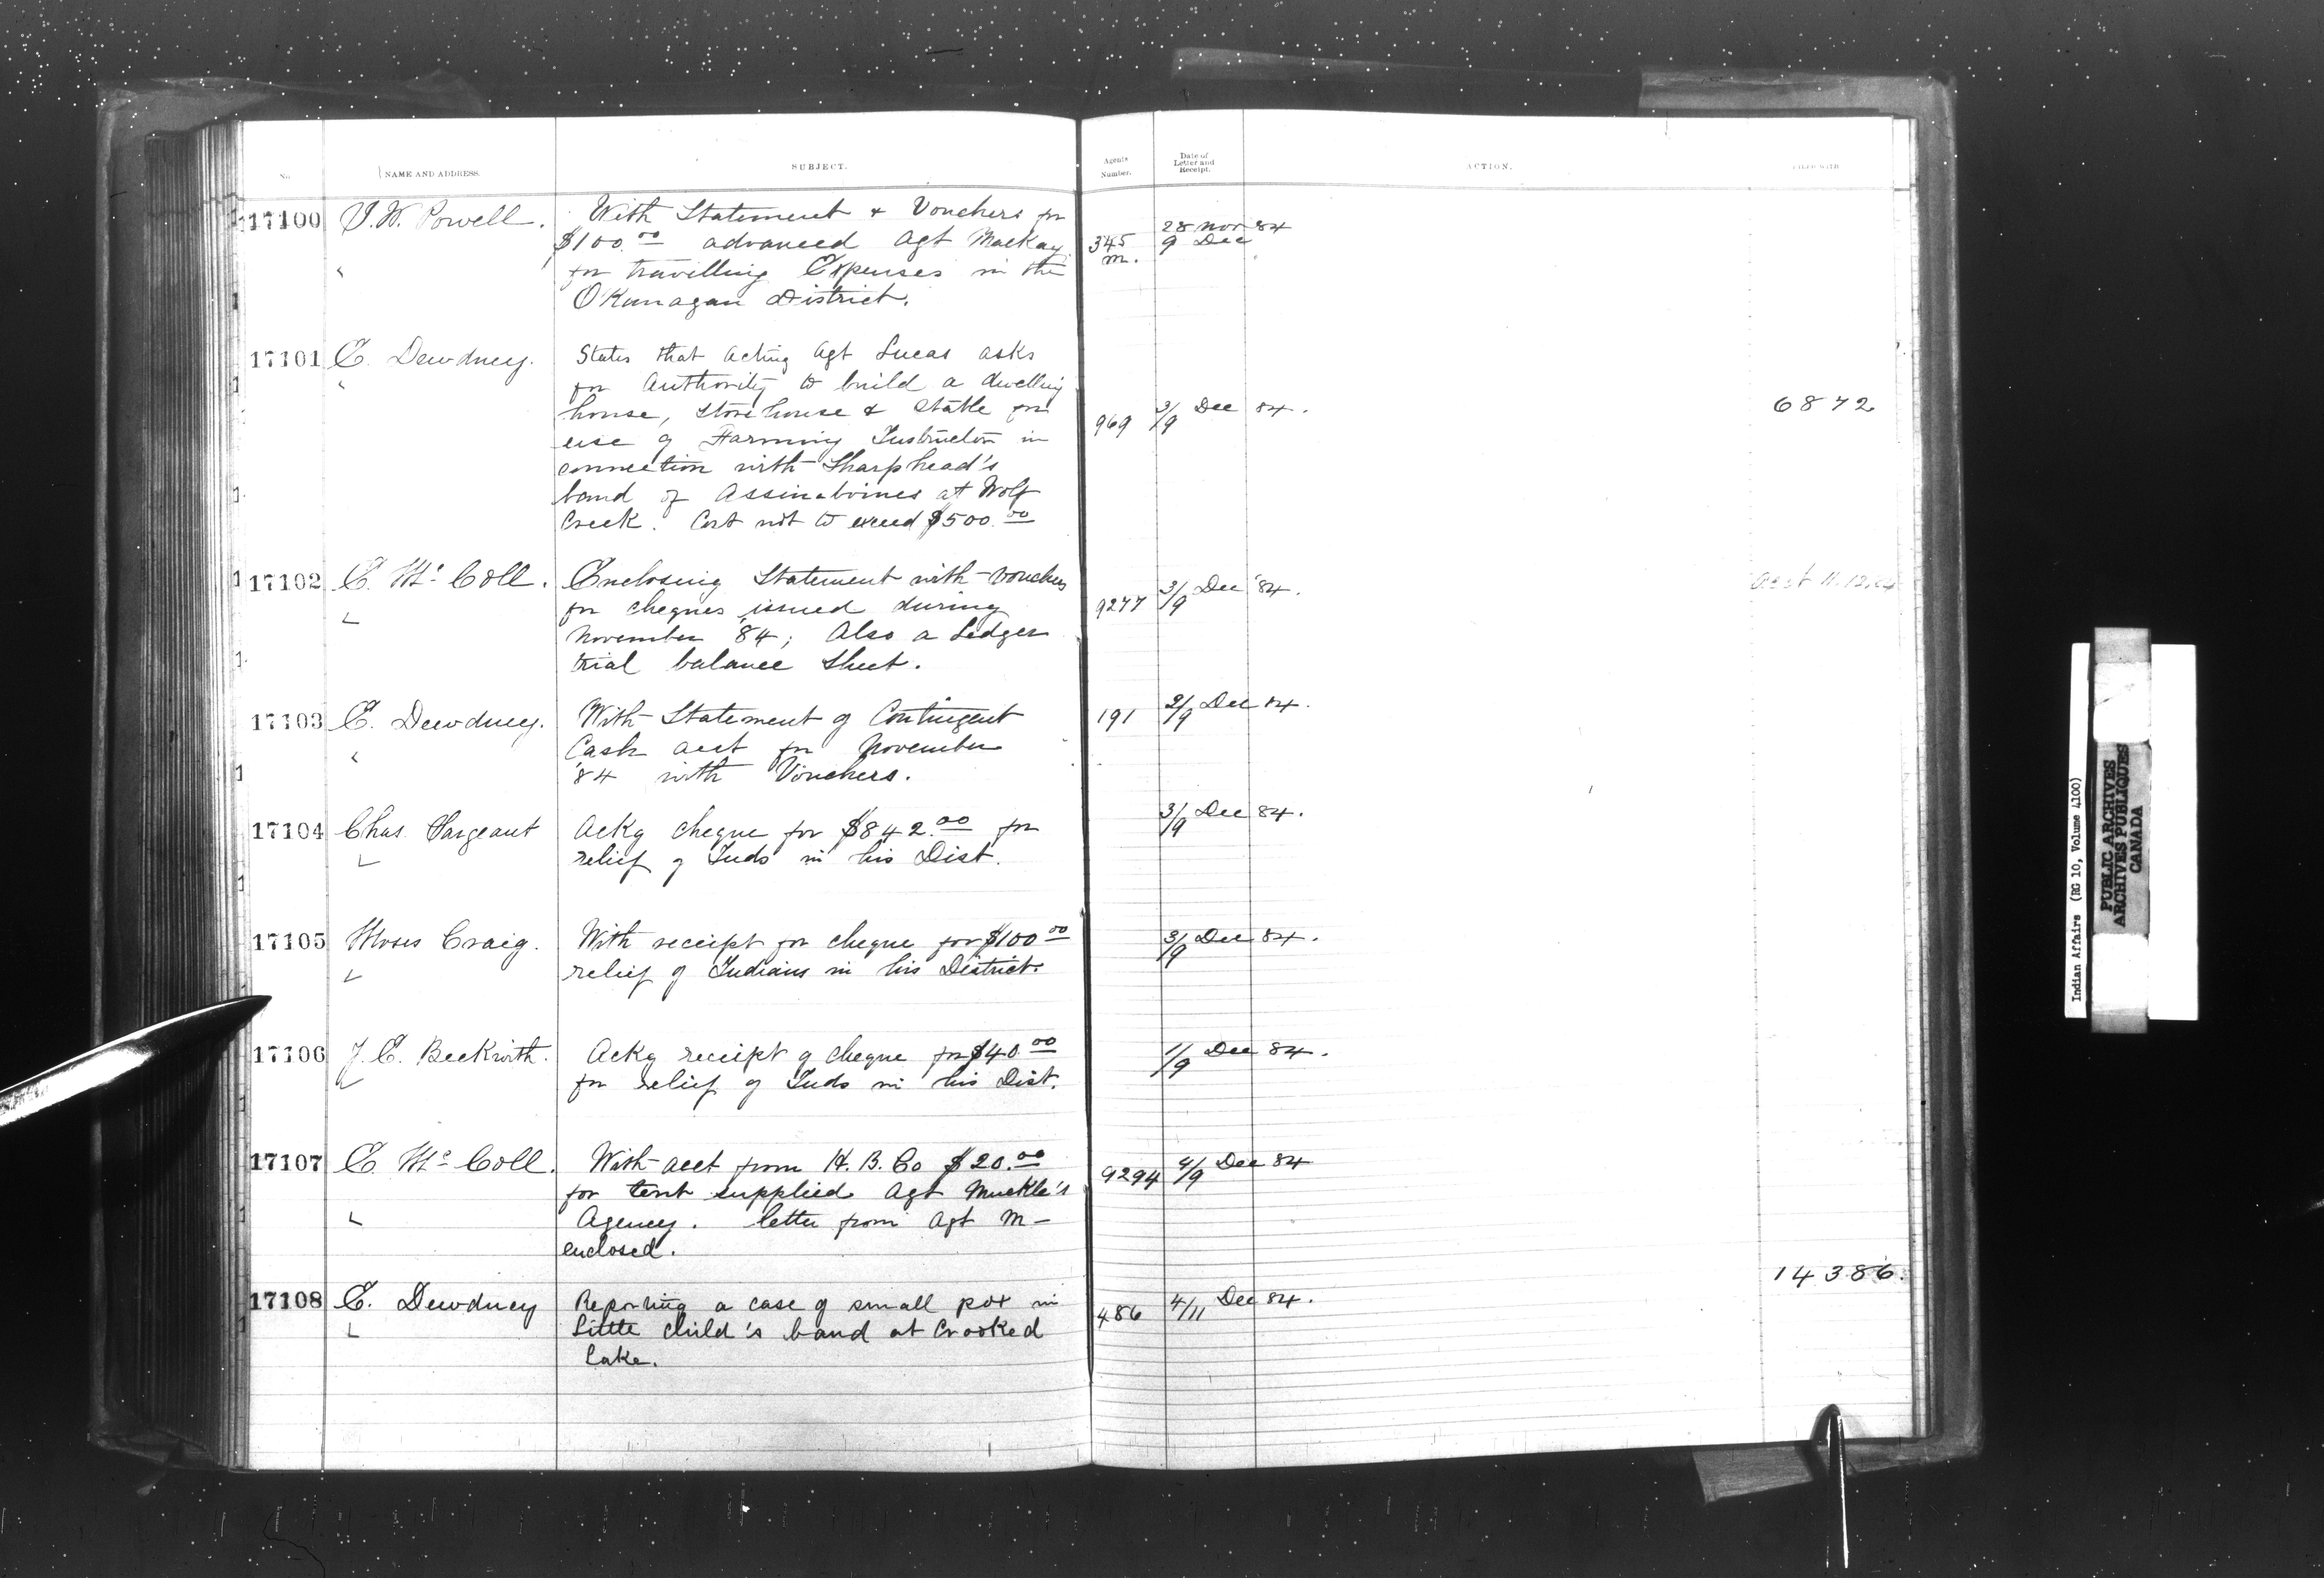 No. NAME AND ADDRESS. SUBJECT. Agents Number. Date of Letter and Receipt. ACTION. FILED WITH
17100 I. W. Powell. With Statement & Vouchers for
$100.00 advanced Agt Mackay
for travelling Expenses in the
O'Kanagan District.
345 m. 28 Nov 84
9 Dec
17101 E. Dewdney. States that Acting Agt Lucas asks
for Authority to build a dwelling
house, Storehouse & Stable for
use of Farming Instructor in
connection with Sharphead's
band of Assinaboines at Wolf
Creek. Cost not to exceed $500.00
969 3/9 Dec 84. 6872
17102 E. McColl. Enclosing Statement with vouchers
for cheques issued during
November '84; Also a Ledger
trial balance sheet.
9277 3/9 Dec '84.
17103 E. Dewdney. With Statement of Contingent
Cash acct for November
'84 with Vouchers.
191 2/9 Dec 84.
17104 Chas. Sargeant Ackg cheque for $842.00 for
relief of Inds in his Dist.
3/9 Dec 84.
17105 Moses Craig. With receipt for cheque for $100.00
relief of Indians in his District.
3/9 Dec 84.
17106 J. E. Beckwith. Ackg receipt of cheque for $40.00
for relief of Inds in his Dist.
1/9 Dec 84.
17107 E. McColl. With acct from H. B. Co $20.00
for tent supplied Agt Muckle's
Agency. letter from Agt M–
enclosed.
9294 4/9 Dec 84
17108 E. Dewdney Reporting a case of small pox in
Little Child's band at Crooked
Lake.
486 4/11 Dec 84. 14386.
Indian Affairs (RG 10, Volume 4100)
PUBLIC ARCHIVES
ARCHIVES PUBLIQUES
CANADA